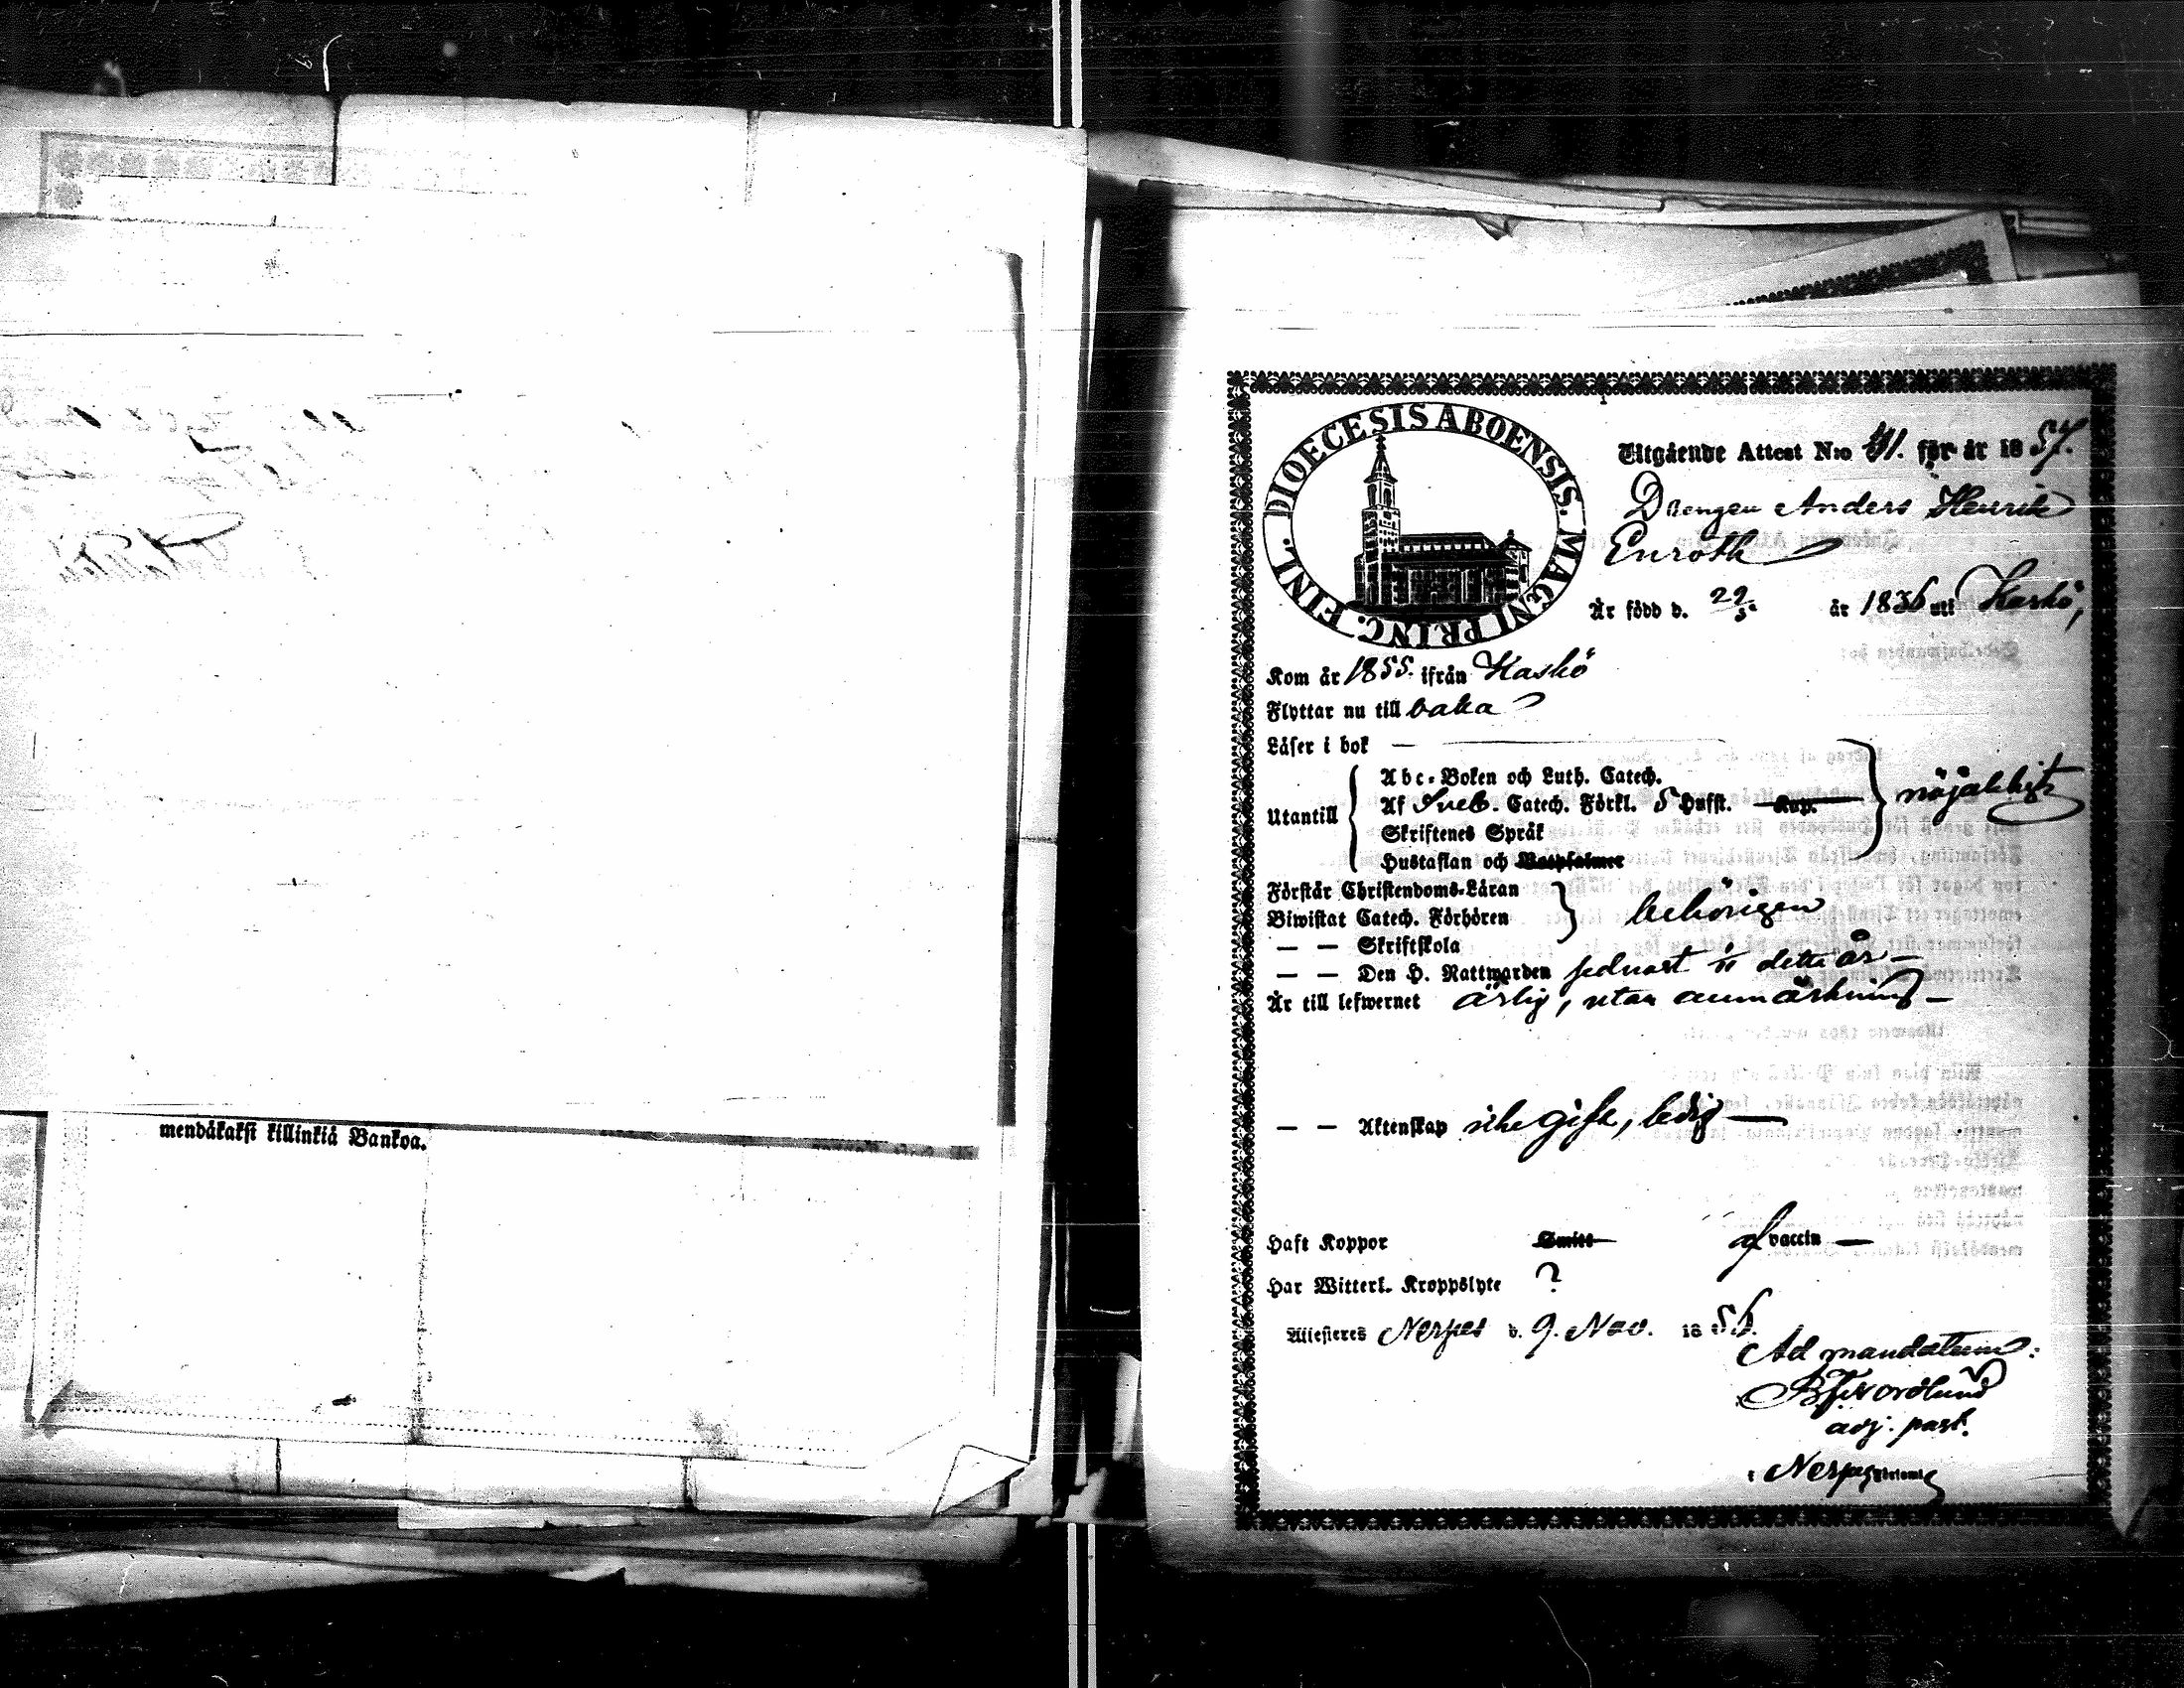 mendäkaksi killinkiä Bankoa.
DIOECESIS ABOENSIS. MAGNI PRINC. FINL.
Utgående Attest N:o 41. för år 1857.
Drengen Anders Henrik
Enroth
Är född d. 29/5. år 1836 uti Kaskö,
Kom år 1855. ifrån Kaskö
Flyttar nu till baka
Läser i bok —
Abc-Boken och Luth. Catech.
Utantill
Af Sveb. Catech. Förkl. 5 Hufst. Kap.
nöjaktigt
Skriftenes Språk
Hustaflan och Botpsalmer
Förstår Christendoms-Läran
Biwistat Catech. Förhören
behörigen
— — Skriftskola
— — Den H. Nattwarden sednast detta år —
Är till lefwernet ärlig, utan anmärkning —
— — Äktenskap icke gift, ledig —
Haft Koppor Smitt af vaccin —
Har Witterl. Kroppslyte ?
Attesteres Nerpes d. 9. Nov. 1856.
Ad mandatum:
Nordlund
adj. past.
i Nerpes